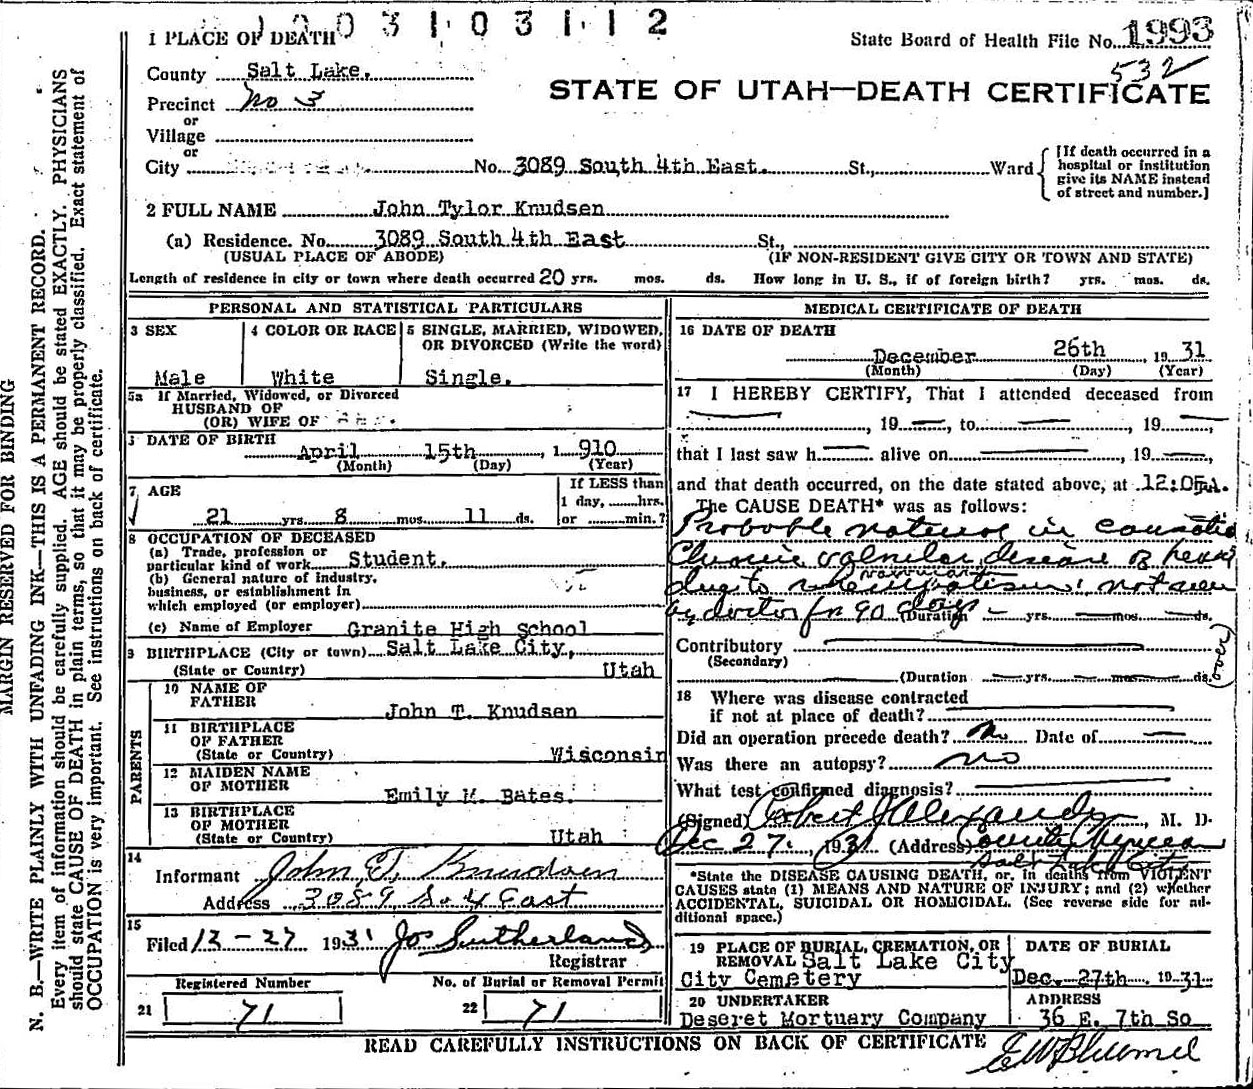 1 0 0 3 1 0 3 1 1 2
1 PLACE OF DEATH
State Board of Health File No. 1993
532
County Salt Lake.
STATE OF UTAH—DEATH CERTIFICATE
Precinct No 3
or
Village
or
City No. 3089 South 4th East. St., Ward
[If death occurred in a hospital or institution give its NAME instead of street and number.]
2 FULL NAME John Tylor Knudsen
(a) Residence. No. 3089 South 4th East St.,
(USUAL PLACE OF ABODE) (IF NON-RESIDENT GIVE CITY OR TOWN AND STATE)
Length of residence in city or town where death occurred 20 yrs. mos. ds. How long in U. S., if of foreign birth? yrs. mos. ds.
PERSONAL AND STATISTICAL PARTICULARS
3 SEX
Male
4 COLOR OR RACE
White
5 SINGLE, MARRIED, WIDOWED, OR DIVORCED (Write the word)
Single.
5a If Married, Widowed, or Divorced
HUSBAND OF
(OR) WIFE OF
DATE OF BIRTH
April 15th , 1 910
(Month) (Day) (Year)
7 AGE
21 yrs. 8 mos. 11 ds.
If LESS than
1 day, hrs.
or min.?
8 OCCUPATION OF DECEASED
(a) Trade, profession or
particular kind of work Student.
(b) General nature of industry,
business, or establishment in
which employed (or employer)
(c) Name of Employer Granite High School
9 BIRTHPLACE (City or town) Salt Lake City,
(State or Country) Utah
PARENTS
10 NAME OF
FATHER
John T. Knudsen
11 BIRTHPLACE
OF FATHER
(State or Country) Wisconsin
12 MAIDEN NAME
OF MOTHER
Emily M. Bates.
13 BIRTHPLACE
OF MOTHER
(State or Country) Utah
14
Informant John T. Knudsen
Address 3089 So 4 East
15
Filed 12-27 1931 Jos Sutherland
Registrar
Registered Number
21 71
No. of Burial or Removal Permit
22 71
MEDICAL CERTIFICATE OF DEATH
16 DATE OF DEATH
December 26th , 19 31
(Month) (Day) (Year)
17 I HEREBY CERTIFY, That I attended deceased from
, 19 , to , 19
that I last saw h alive on , 19 ,
and that death occurred, on the date stated above, at 12:05A.
The CAUSE DEATH* was as follows:
Probable natural in causation
Chronic valvular disease of heart
due to rheumatism not seen
by doctor for 90 days
(Duration yrs. mos. ds.
Contributory
(Secondary)
(Duration yrs. mos. ds.
(over)
18 Where was disease contracted
if not at place of death?
Did an operation precede death? no Date of
Was there an autopsy? no
What test confirmed diagnosis?
(Signed) Robert J Alexander , M. D.
Dec 27. 1931 (Address) County Physician
Salt Lake City
*State the DISEASE CAUSING DEATH, or, in deaths from VIOLENT
CAUSES state (1) MEANS AND NATURE OF INJURY; and (2) whether
ACCIDENTAL, SUICIDAL OR HOMICIDAL. (See reverse side for ad-
ditional space.)
19 PLACE OF BURIAL, CREMATION, OR
REMOVAL Salt Lake City
City Cemetery
DATE OF BURIAL
Dec. 27th. 19 31
20 UNDERTAKER
Deseret Mortuary Company
ADDRESS
36 E. 7th So
READ CAREFULLY INSTRUCTIONS ON BACK OF CERTIFICATE
MARGIN RESERVED FOR BINDING
N. B.—WRITE PLAINLY WITH UNFADING INK—THIS IS A PERMANENT RECORD.
Every item of information should be carefully supplied. AGE should be stated EXACTLY. PHYSICIANS
should state CAUSE OF DEATH in plain terms, so that it may be properly classified. Exact statement of
OCCUPATION is very important. See instructions on back of certificate.